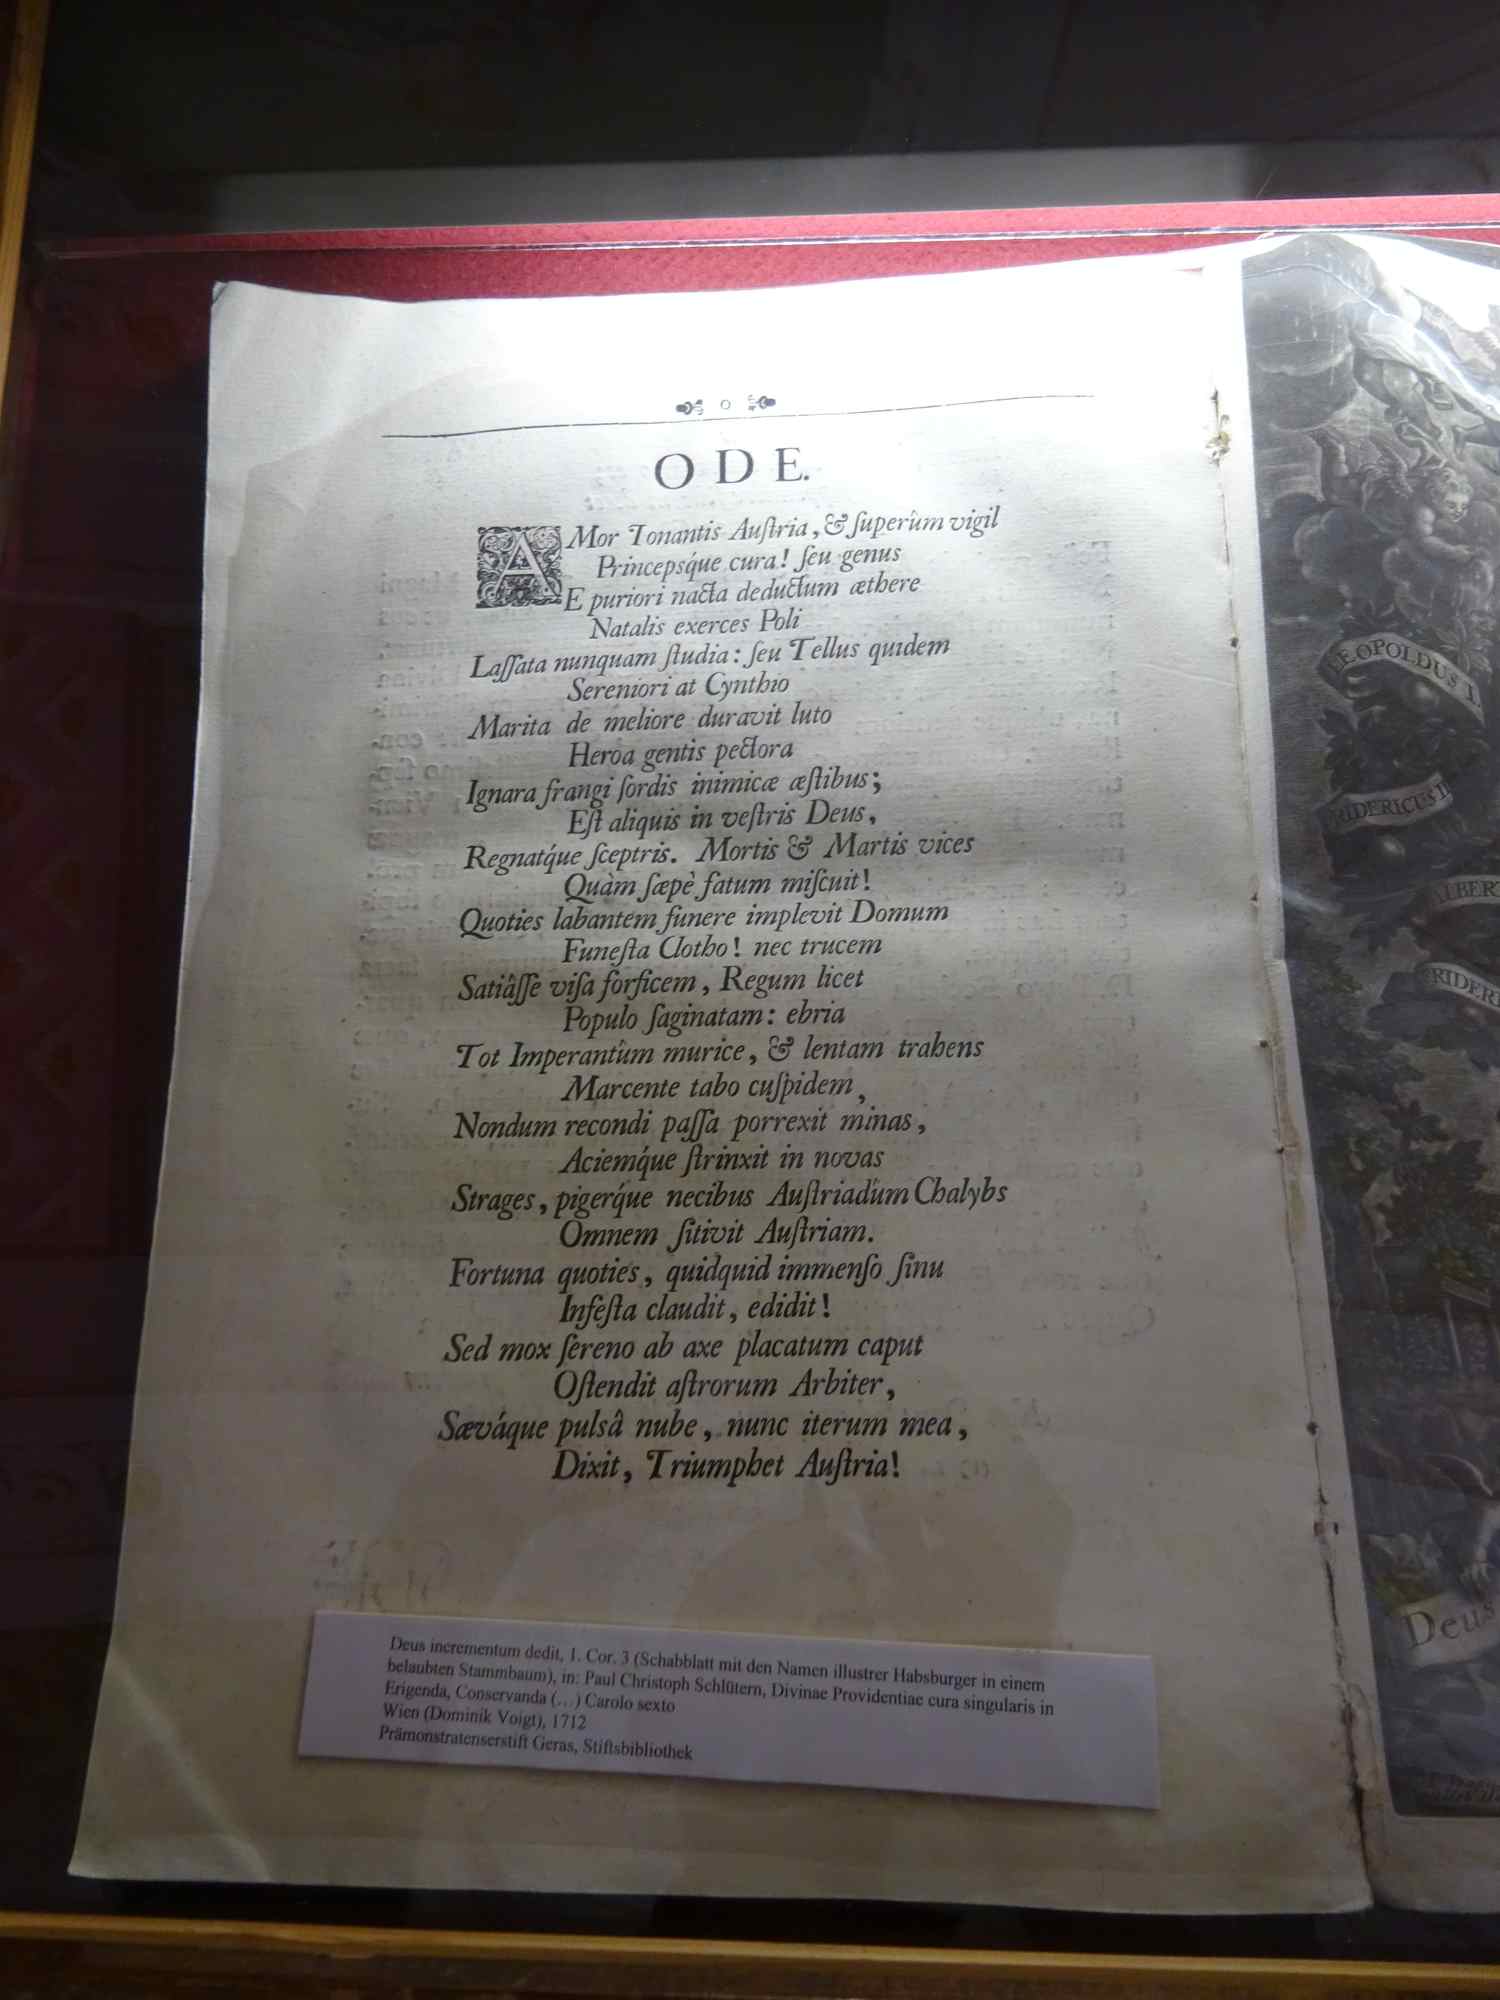 ODE.
AMor Tonantis Auſtria, & ſuperûm vigil
Princepsq́ue cura! ſeu genus
E puriori nacta deductum æthere
Natalis exerces Poli
Laſſata nunquam ſtudia: ſeu Tellus quidem
Sereniori at Cynthio
Marita de meliore duravit luto
Heroa gentis pectora
Ignara frangi ſordis inimicæ æſtibus;
Eſt aliquis in veſtris Deus,
Regnatq́ue ſceptris. Mortis & Martis vices
Quàm ſæpè fatum miſcuit!
Quoties labantem funere implevit Domum
Funeſta Clotho! nec trucem
Satiâſſe viſa forficem, Regum licet
Populo ſaginatam: ebria
Tot Imperantûm murice, & lentam trahens
Marcente tabo cuſpidem,
Nondum recondi paſſa porrexit minas,
Aciemq́ue ſtrinxit in novas
Strages, pigerq́ue necibus Auſtriadûm Chalybs
Omnem ſitivit Auſtriam.
Fortuna quoties, quidquid immenſo ſinu
Infeſta claudit, edidit!
Sed mox ſereno ab axe placatum caput
Oſtendit aſtrorum Arbiter,
Sæváque pulsâ nube, nunc iterum mea,
Dixit, Triumphet Auſtria!
Deus incrementum dedit, 1. Cor. 3 (Schabblatt mit den Namen illustrer Habsburger in einem
belaubten Stammbaum), in: Paul Christoph Schlütern, Divinae Providentiae cura singularis in
Erigenda, Conservanda (…) Carolo sexto
Wien (Dominik Voigt), 1712
Prämonstratenserstift Geras, Stiftsbibliothek
LEOPOLDUS I.
RIDERICUS
ALBERT
RIDERI
Deus